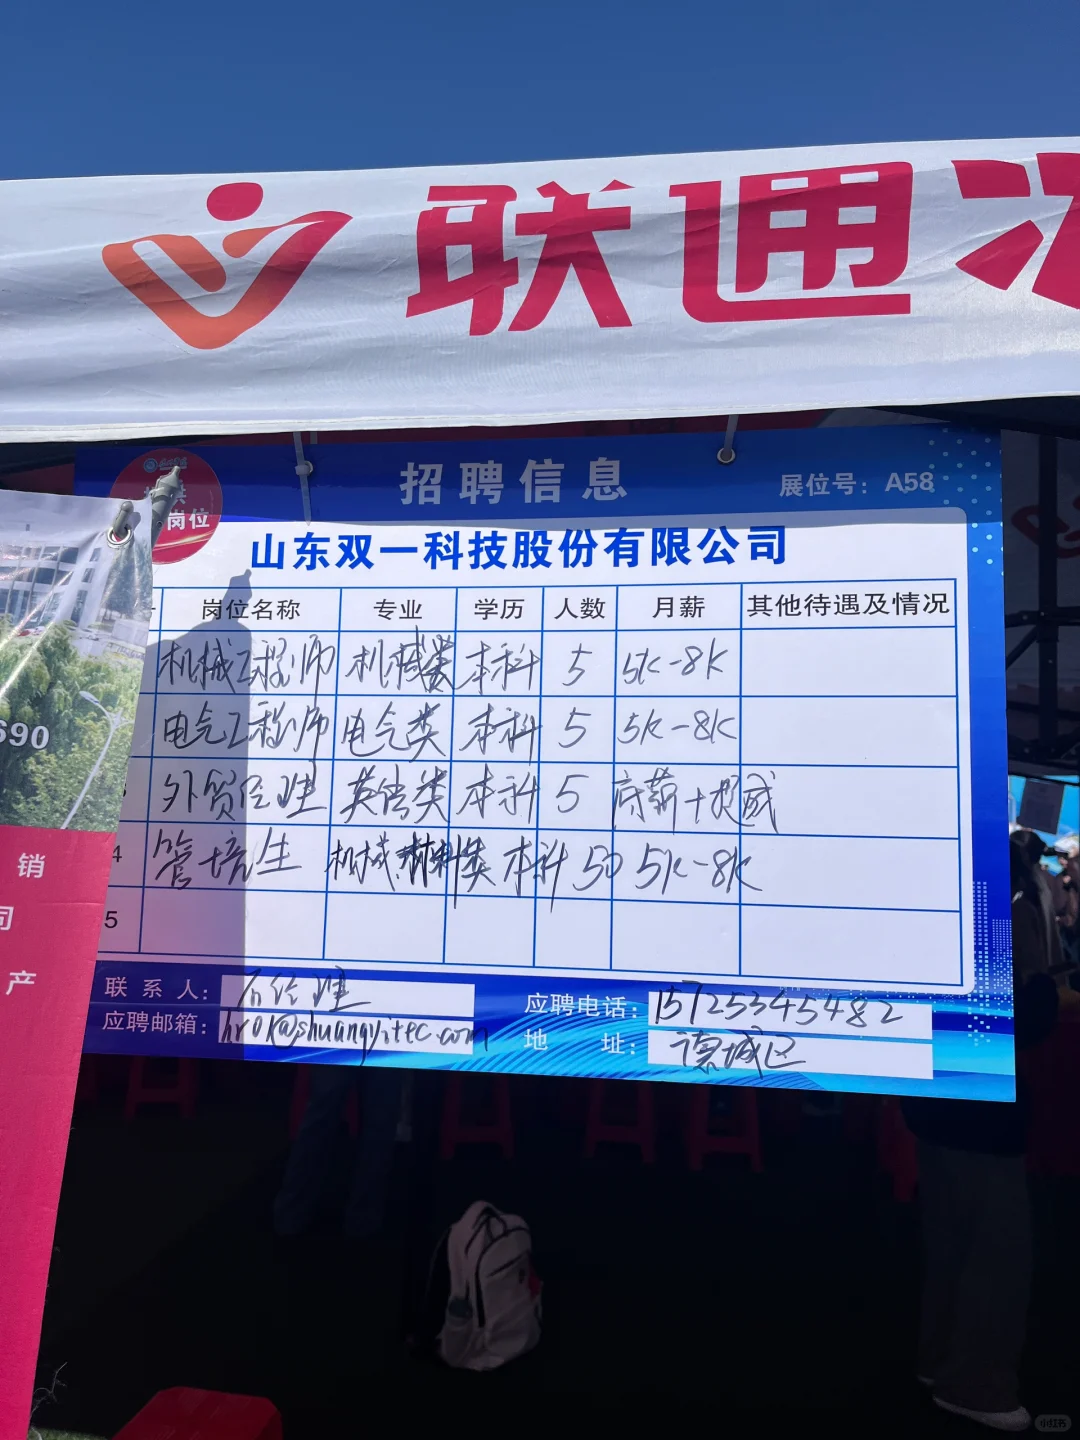 联通
招聘信息 展位号：A58
岗位
山东双一科技股份有限公司
岗位名称 专业 学历 人数 月薪 其他待遇及情况
机械工程师 机械类 本科 5 5K-8K
电气工程师 电气类 本科 5 5K-8K
外贸经理 英语类 本科 5 底薪+提成
4 管培生 机械.材料类 本科 50 5K-8K
5
联系人： 石经理 应聘电话：15725345482
应聘邮箱：hr01@shuangyitec.com 地址：德城区
690
销
司
产
小红书